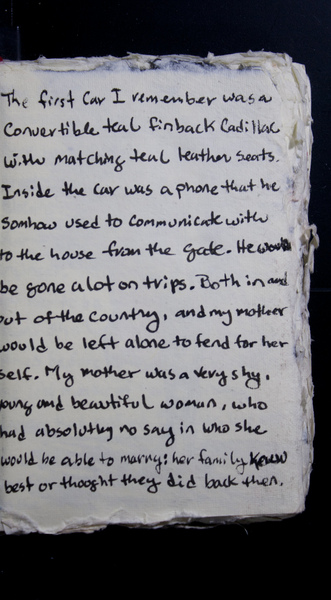 The first car I remember was a
Convertible teal finback Cadillac
with matching teal leather seats.
Inside the car was a phone that he
somhow used to communicate with
to the house from the gate. He would
be gone alot on trips. Both in and
out of the country, and my mother
would be left alone to fend for her
self. My mother was a very shy,
young and beautiful woman, who
had absolutly no say in who she
would be able to marry; her family knew
best or thooght they did back then.